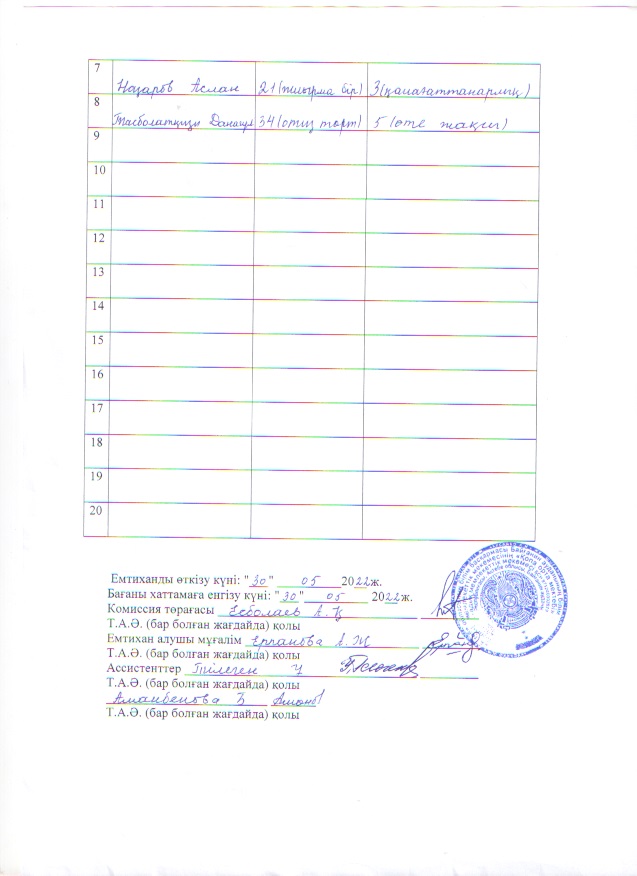 7
Назаров Аслан 21 (жиырма бір) 3 (қанағаттанарлық)
8
Тасболатқызы 34 (отыз төрт) 5 (өте жақсы)
9
10
11
12
13
14
15
16
17
18
19
20
Емтиханды өткізу күні: "30" 05 2022ж.
Бағаны хаттамаға енгізу күні: "30" 05 2022ж.
Комиссия төрағасы
Т.А.Ә. (бар болған жағдайда) қолы
Емтихан алушы мұғалім А. Ж
Т.А.Ә. (бар болған жағдайда) қолы
Ассистенттер Тілеген Ч
Т.А.Ә. (бар болған жағдайда) қолы
Аманбенова Б
Т.А.Ә. (бар болған жағдайда) қолы